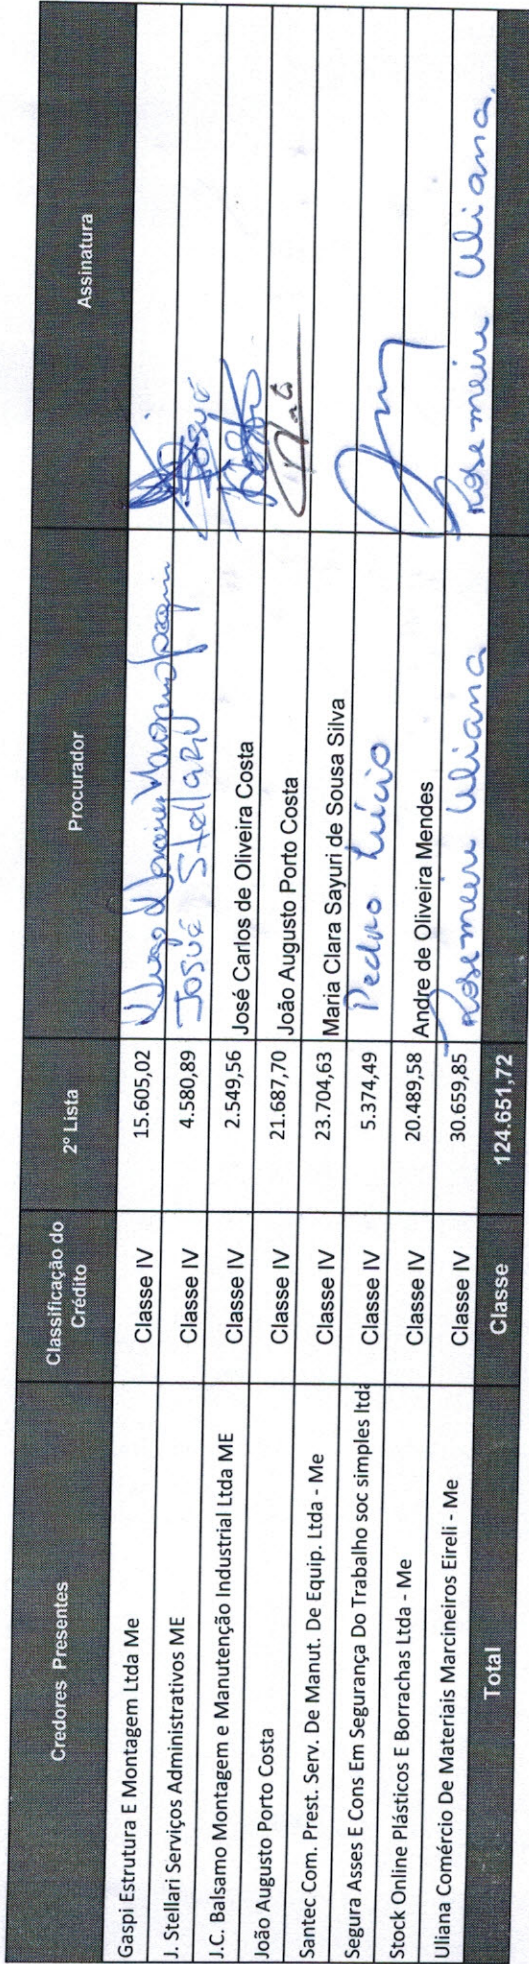 Credores Presentes Classificação do Crédito 2º Lista Procurador Assinatura
Gaspi Estrutura E Montagem Ltda Me Classe IV 15.605,02
J. Stellari Serviços Administrativos ME Classe IV 4.580,89 Josué Stellari Josué
J.C. Balsamo Montagem e Manutenção Industrial Ltda ME Classe IV 2.549,56 José Carlos de Oliveira Costa
João Augusto Porto Costa Classe IV 21.687,70 João Augusto Porto Costa
Santec Com. Prest. Serv. De Manut. De Equip. Ltda - Me Classe IV 23.704,63 Maria Clara Sayuri de Sousa Silva
Segura Asses E Cons Em Segurança Do Trabalho soc simples ltda Classe IV 5.374,49 Pedro Lúcio
Stock Online Plásticos E Borrachas Ltda - Me Classe IV 20.489,58 Andre de Oliveira Mendes
Uliana Comércio De Materiais Marcineiros Eireli - Me Classe IV 30.659,85 Rosemeire Uliana Rosemeire Uliana
Total Classe 124.651,72